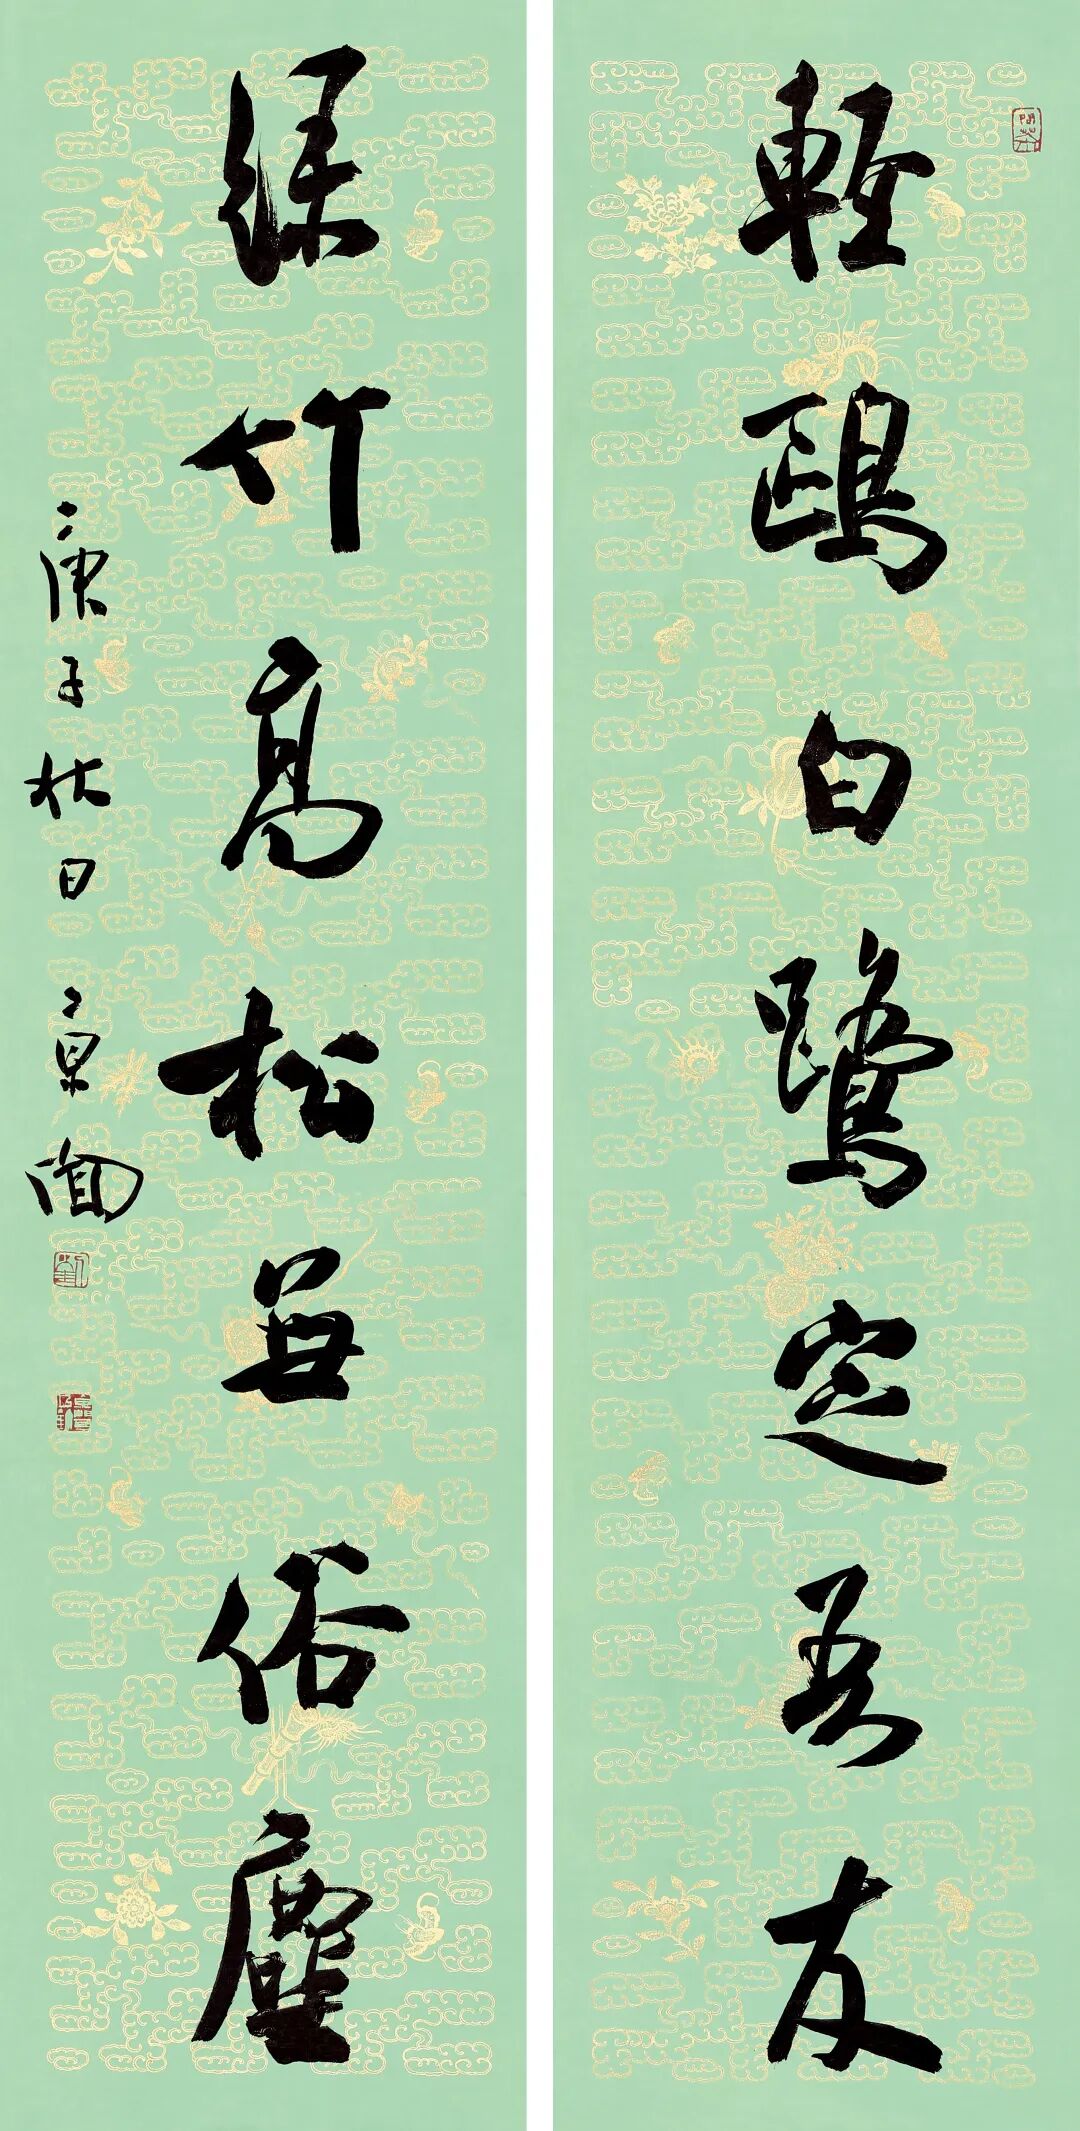 輕鷗白鷺定吾友
綠竹高松無俗塵
庚子秋日